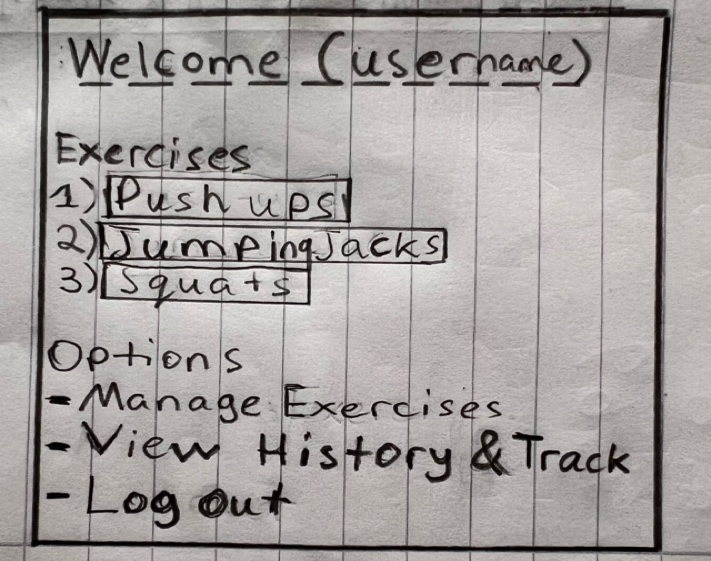 Welcome (username)
Exercises
1) Push ups
2) Jumping Jacks
3) Squats
Options
- Manage Exercises
- View History & Track
- Log out